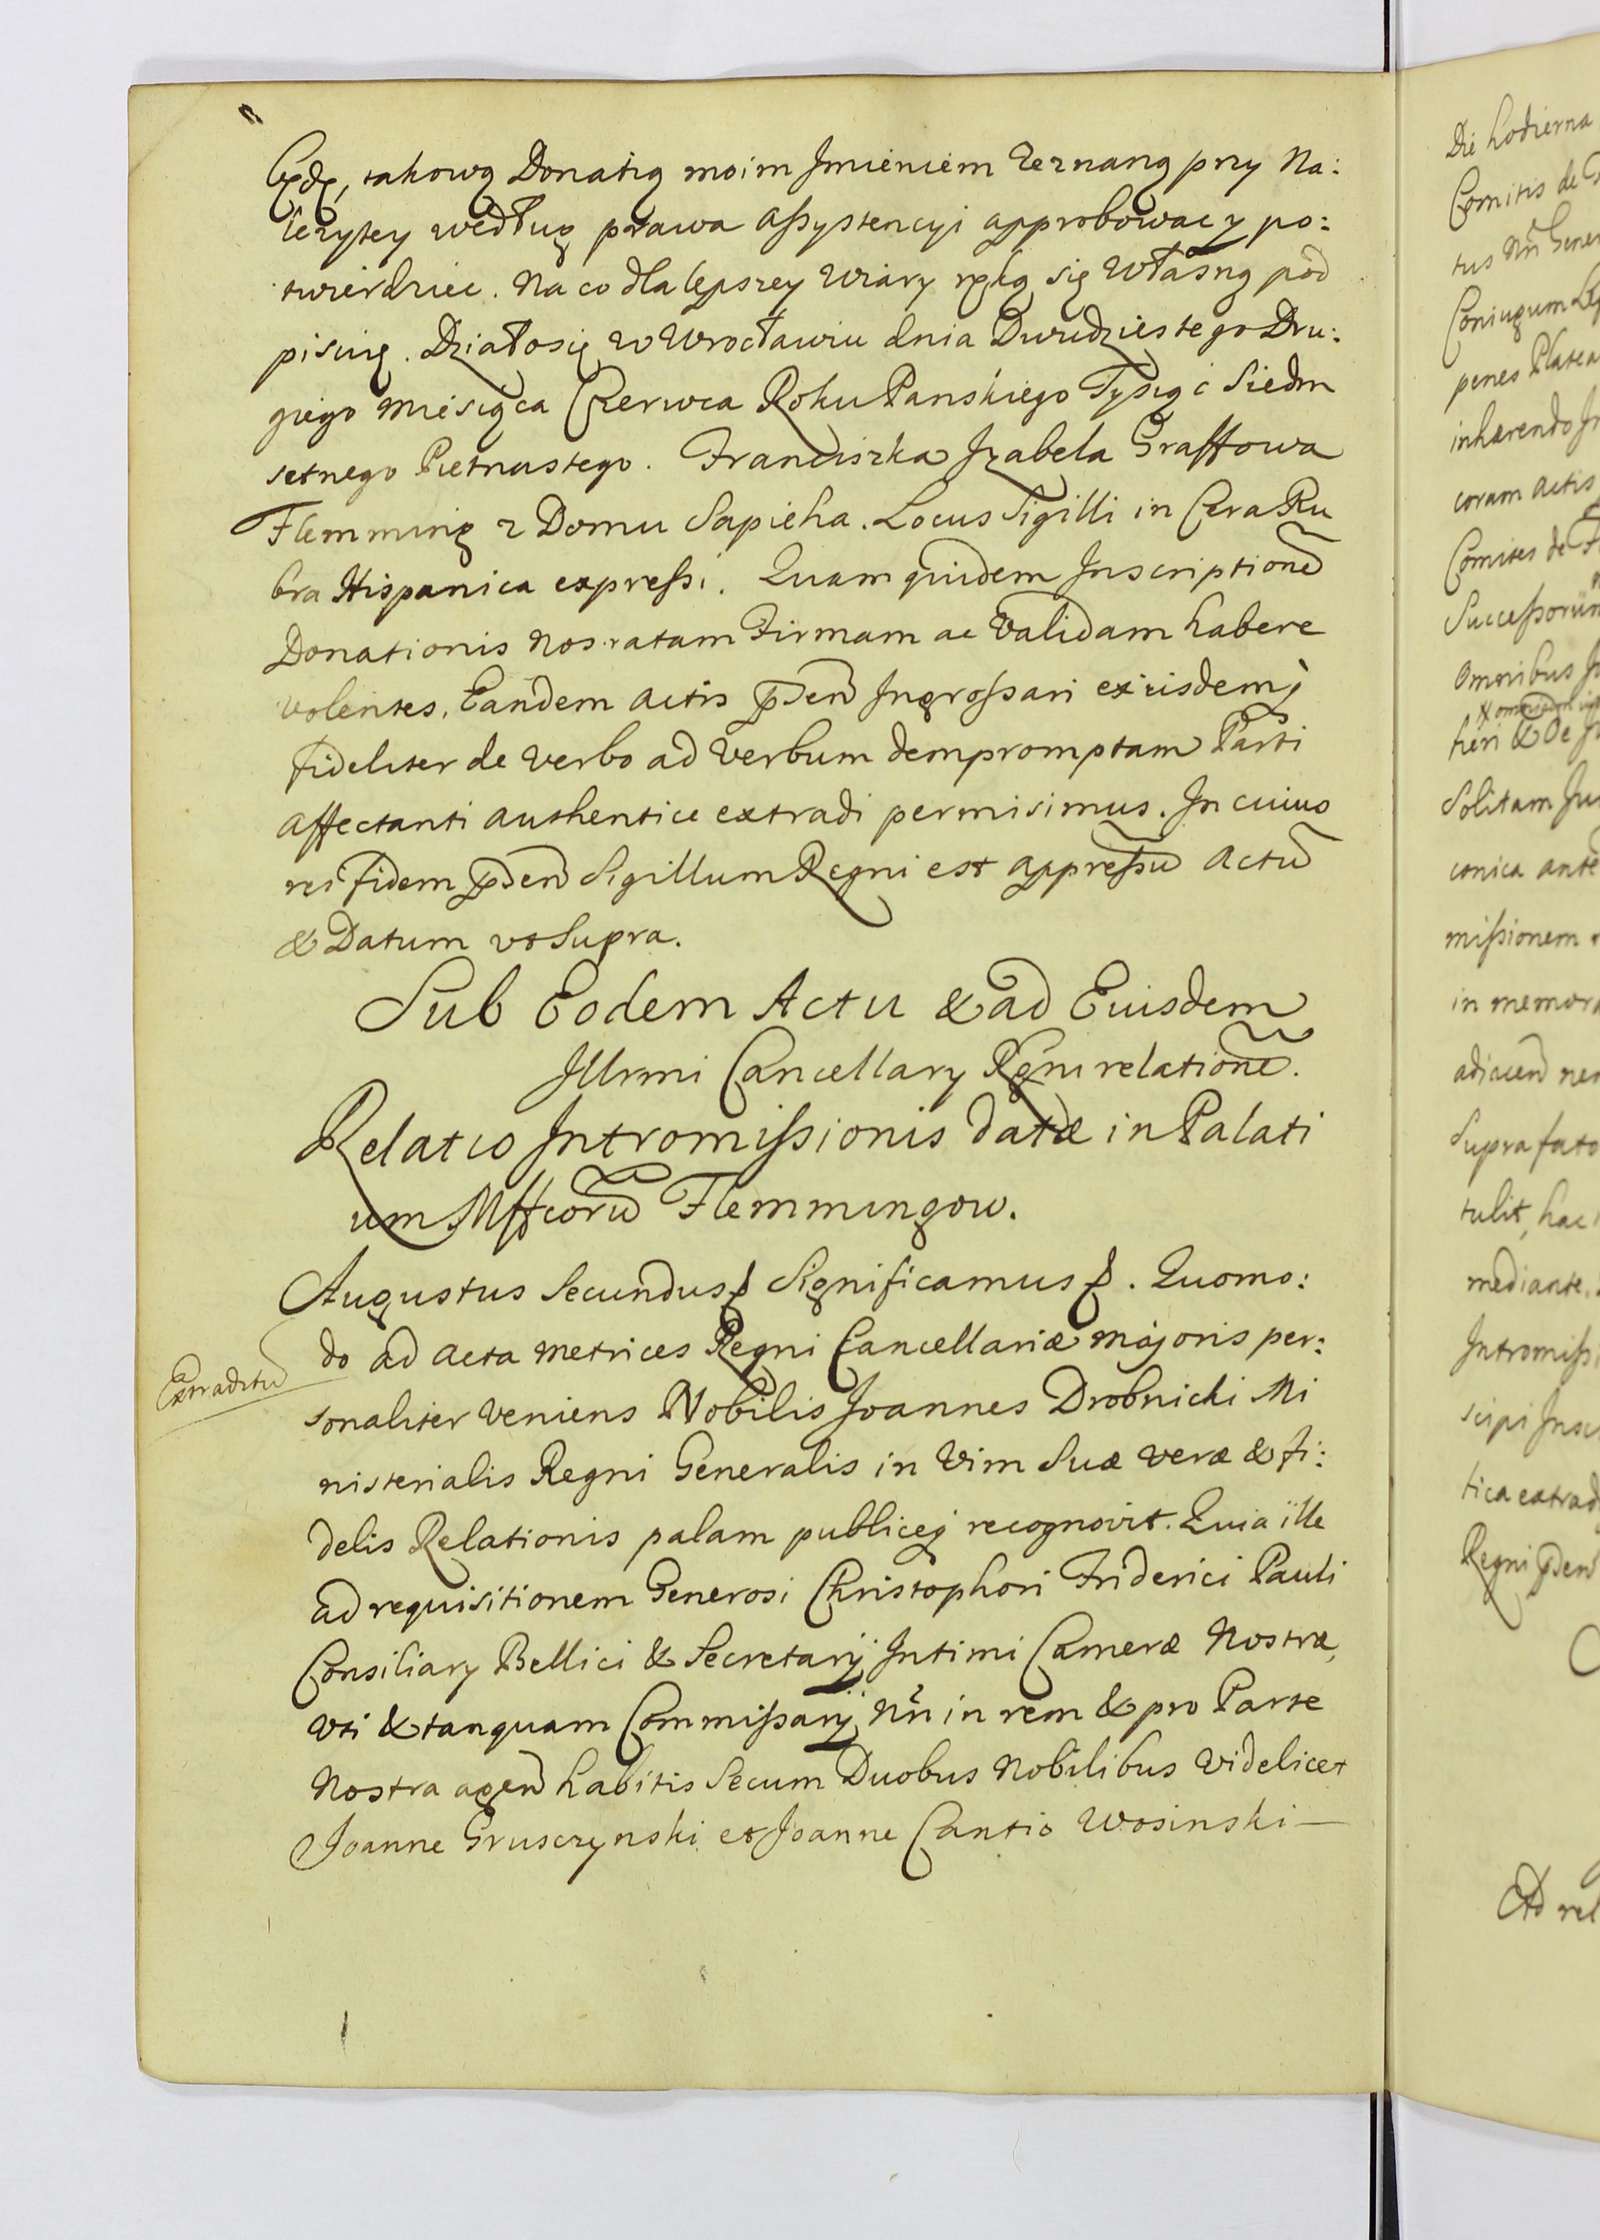 będę, takową Donatią moim Jmieniem Zeznaną przy Na:
leżytey według prawa assystencyi approbować y po:
twierdzieć. Na co dla lepszey Wiary ręką się Własną pod
pisuię. Działosię w Wrocławiu dnia Dwudziestego Dru:
giego Miesiąca Czerwca Roku Panskiego Tysiąć Siedm
setnego Pietnastego. Franciszka Jzabela Graffowa
Flemming z Domu Sapieha. Locus Sigilli in Cera Ru
bra Hispanica expressi. Quam quidem Jnscriptionē
Donationis Nos ratam Firmam ac Validam habere
volentes, Eandem Actis pñsen Jngrossari ex iisdemq
fideliter de verbo ad verbum demprompтam Parti
affectanti authentice extradi permisimus. Jn cuius
rei fidem pñsen Sigillum Regni est appressū Actū
& Datum vt Supra.
Sub Eodem Actu & ad Euisdem
Jllrmi Cancellary Rgni relationē.
Relatio Jntromissionis datæ in Palati
um Mffcorū Flemmingow.
Augustus Secundus ꝭ Significamus ꝭ. Quomo:
do ad Acta Metrices Regni Cancellariæ Majoris per:
Extraditū
sonaliter Veniens Nobilis Joannes Drobnicki Mi
nisterialis Regni Generalis in Vim Suæ veræ & fi:
delis Relationis palam publiceq recognovit. Quia ille
ad requisitionem Generosi Christophori Friderici Pauli
Consiliary Bellici & Secretarij Jntimi Cameræ Nostræ,
Vti & tanquam Commissarij Nri in rem & pro Parte
Nostra agen habitis Secum Duobus Nobilibus Videlicet
Joanne Grusczynski et Joanne Cantio Wosinski —
Die hodierna
Comitis de
tus Nri Gener
Coniugum
penes Platea
inhærendo
coram Actis
Comites de
Successorum
Omnibus
fieri & de
Solitam
conica ante
missionem
in memora
adiacen
Supra fato
tulit, hac
mediante.
Intromissi
scipi
tica extrad
Regni pñsen
Ad rel